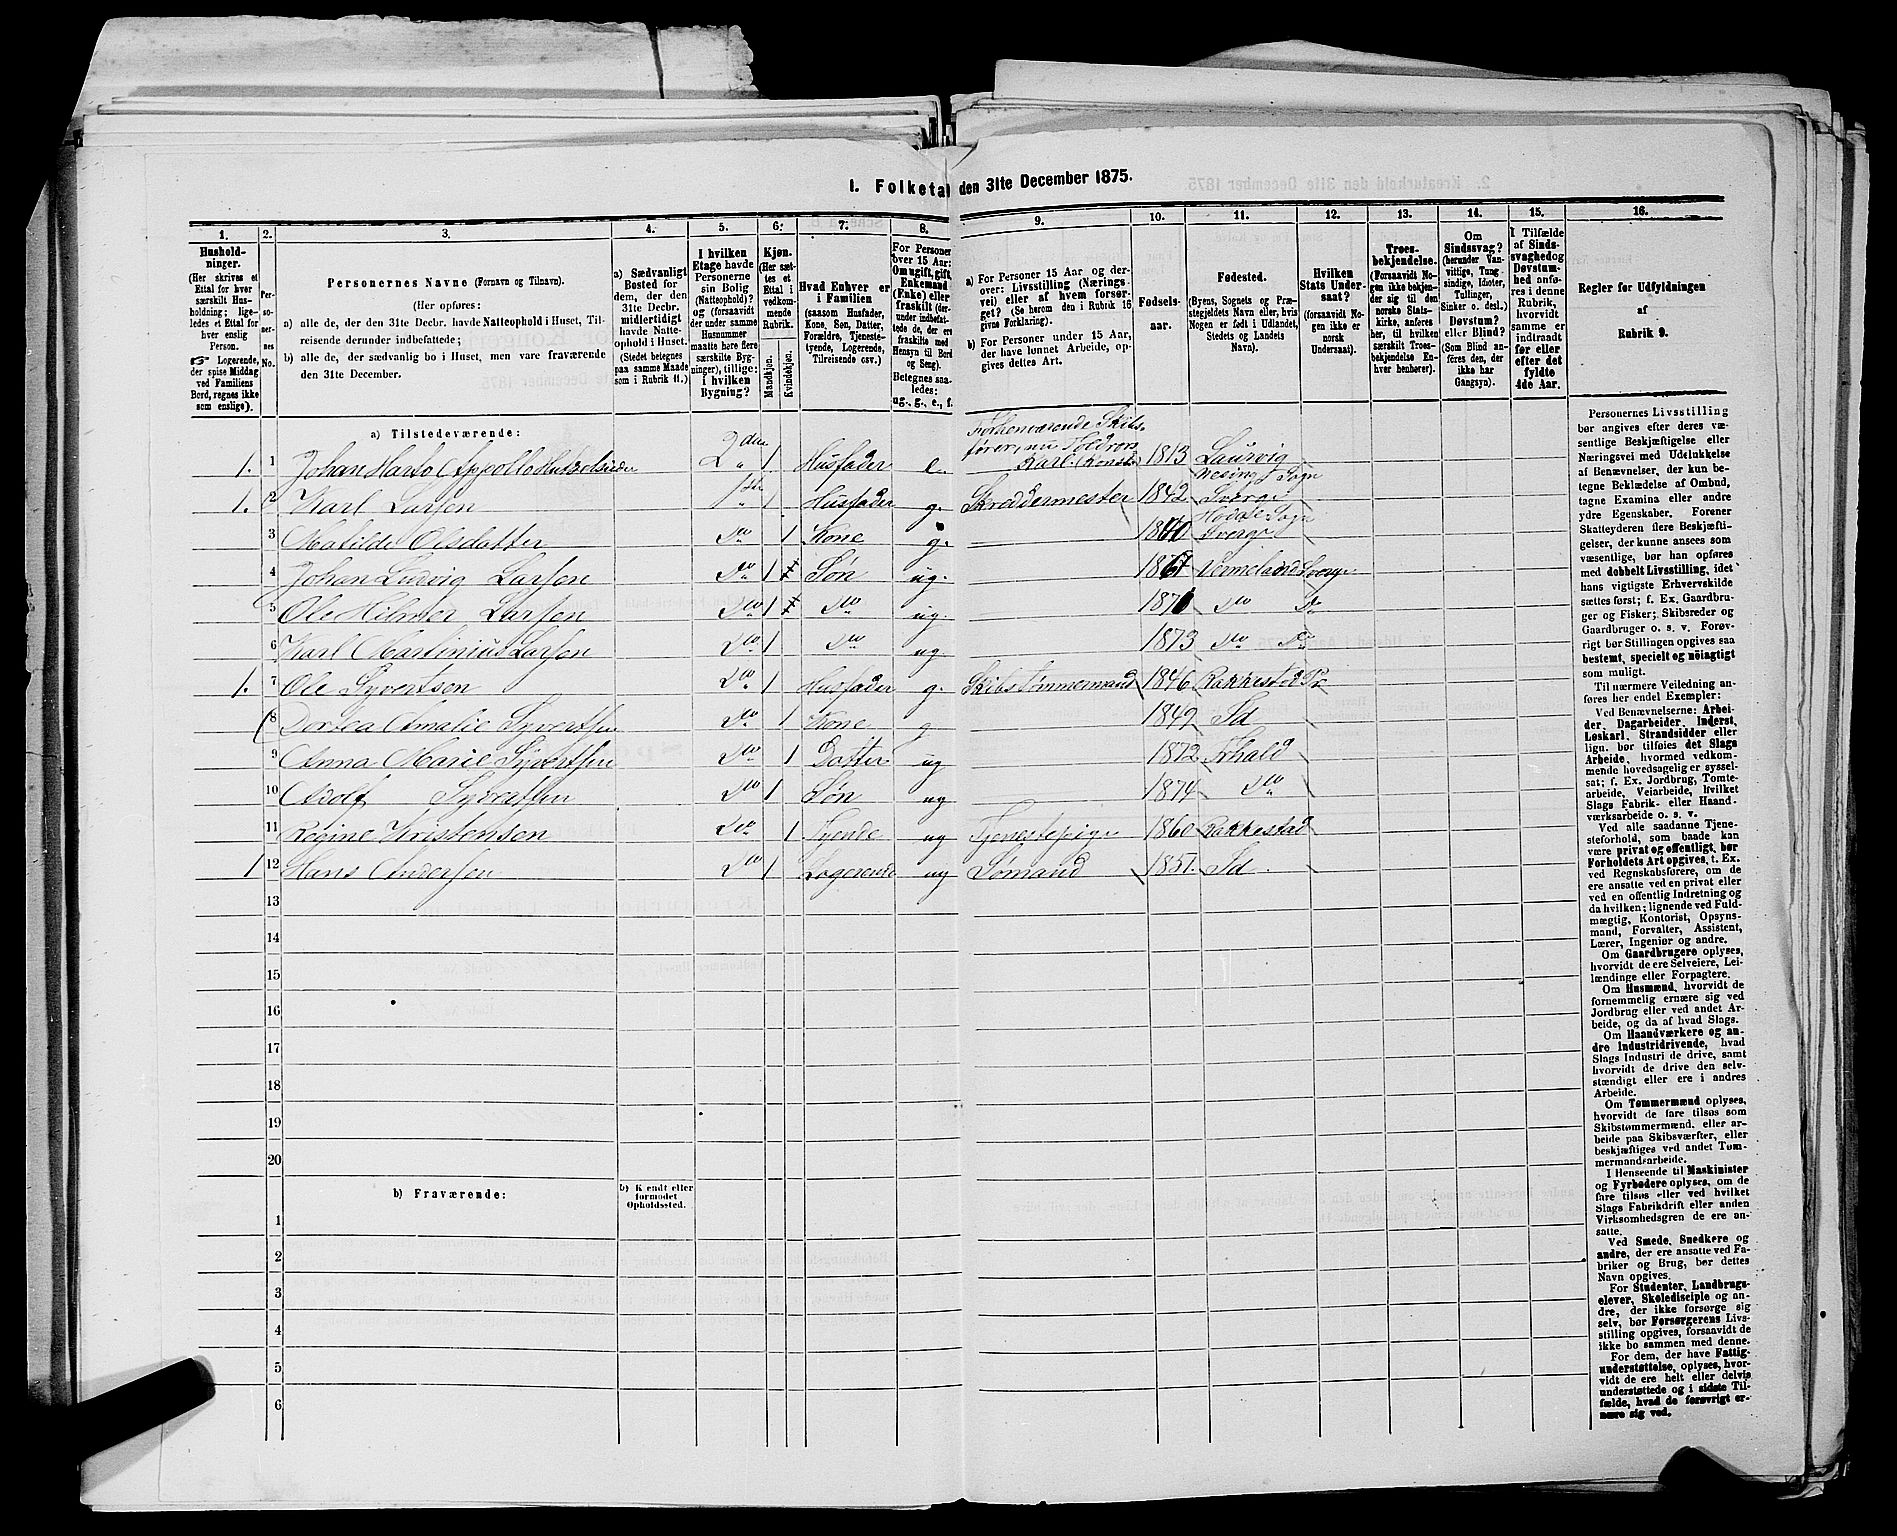 1. Folketal den 31te December 1875.
1. 2. 3. 4. 5. 6. 7. 8. 9. 10. 11. 12. 13. 14. 15. 16.
Husholdninger.
(Her skrives et
Ettal for hver
særskilt Husholdning;
ligeledes et Ettal for
hver enslig
Person.
☞ Logerende,
der spise Middag
ved Familiens
Bord, regnes ikke
som enslige).
Personernes No.
Personernes Navne (Fornavn og Tilnavn).
(Her opføres:
a) alle de, der den 31te Decbr. havde Natteophold i Huset, Tilreisende derunder indbefattede;
b) alle de, der sædvanlig bo i Huset, men vare fraværende
den 31te December.
a) Sædvanligt
Bosted for
dem, der den
31te Decbr.
midlertidigt
havde Natteophold i Huset.
(Stedet betegnes
paa samme Maade
som i Rubrik 11.)
I hvilken
Etage havde
Personerne
sin Bolig
(Natteophold)?
og (forsaavidt
der under samme
Husnummer
maatte høre flere
særskilte Bygninger), tillige:
i hvilken
Bygning?
Kjøn.
(Her sættes
et Ettal i
vedkommende
Rubrik.
Mandkjøn.
Kvindekjøn.
Hvad Enhver er
i Familien
(saasom Husfader,
Kone, Søn, Datter,
Forældre, Tjenestetyende, Logerende,
Tilreisende osv.)
For Personer
over 15 Aar:
Om ugift, gift,
Enkemand
(Enke) eller
fraskilt
Betegnes saaledes:
ug., g., e., f.
a) For Personer 15 Aar og derover: Livsstilling (Næringsvei) eller af hvem forsørget? (Se herom den i Rubrik 16
givne Forklaring).
b) For Personer under 15 Aar,
der have lønnet Arbeide, opgives dettes Art.
Fødselsaar.
Fødested.
(Byens, Sognets og Præstegjeldets Navn eller, hvis
Nogen er født i Udlandet,
Stedets og Landets
Navn).
Hvilken
Stats Undersaat?
(forsaavidt Nogen ikke er
norsk
Undersaat).
Troesbekjendelse.
(Forsaavidt Nogen ikke bekjender sig til den
norske Statskirke, anføres
her, til hvilken
særskilt Troesbekjendelse Enhver henhører).
Om
Sindssvag?
(herunder Vanvittige, Tungsindige, Idioter,
Tullinger,
Sinker o. desl.)
Døvstum?
eller Blind?
(Som Blind anføres den, der
ikke har
Gangsyn).
I Tilfælde
af Sindssvaghed og
Døvstumhed anføres i denne
Rubrik,
hvorvidt
samme er
indtraadt
før eller
efter det
fyldte
4de Aar.
Regler for Udfyldningen
af
Rubrik 9.
a) Tilstedeværende:
1. 1 Johan 2den 1 Husfader e. Forhenværende Skibsfører, nu Toldrors Karl. 1813 Laurvig
1. 2 Karl Larsen 1ste 1 Husfader g. Skreddermester 1842 Sogn Sverge
3 Matilde Olsdatter Do 1 Kone g. 1840 Sogn Sverge
4 Johan Ludvig Larsen Do 1 Søn ug. 1867 Vermeland Sverge
5 Ole Hilmer Larsen Do 1 Do ug. 1871 Do Do
6 Karl Martinius Larsen Do 1 Do ug 1873 Do Do
1. 7 Ole Syvertsen Do 1 Husfader g. Skibstømmermand 1846 Rakkestad Pr
8 Dortea Amalie Syvertsen Do 1 Kone g 1849 Id
9 Anna Marie Syvertsen Do 1 Datter ug 1872 Frhald
10 Adolf Syvertsen Do 1 Søn ug 1874 Do
11 Regine Kristensen Do 1 Tyende ug Tjenestepige 1860 Rakkestad
1 12 Hans Andersen Do 1 Logerende ug Sømand 1857. Id.
13
14
15
16
17
18
19
20
b) Fraværende:
b) Kjendt eller
formodet
Opholdssted.
1
2
3
4
5
6
Personernes Livsstilling
bør angives efter deres væsentlige Beskjæftigelse eller
Næringsvei med Udelukkelse
af Benævnelser, der kun betegne Beklædelse af Ombud,
tagne Examina eller andre
ydre Egenskaber. Forener
Skatteyderen flere Beskjæftigelser, der kunne ansees som
væsentlige, bør han opføres
med dobbelt Livsstilling, idet
hans vigtigste Erhvervskilde
sættes først; f. Ex. Gaardbruger og Fisker; Skibsreder og
Gaardbruger o. s. v. Forøvrigt bør Stillingen opgives saa
bestemt, specielt og nøiagtigt
som muligt.
Til nærmere Veiledning anføres her endel Exempler:
Ved Benævnelserne: Arbeider, Dagarbeider, Inderst,
Løskarl, Strandsidder eller
lign. bør tilføies det Slags
Arbeide, hvormed vedkommende hovedsagelig er sysselsat; f. Ex. Jordbrug, Tomtearbeide, Veiarbeide, hvilket
Slags Fabrik- eller Haandværksarbeide o. s. v.
Ved alle saadanne Tjenesteforhold, som baade kan
være privat og offentligt, bør
Forholdets Art opgives, t. Ex.
ved Regnskabsførere, om de
ere ansatte ved en privat eller
en offentlig Indretning og
da hvilken; lignende ved Fuldmægtig, Kontorist, Opsynsmand, Forvalter, Assistent,
Lærer, Ingeniør og andre.
Om Gaardbrugere oplyses,
hvorvidt de ere Selveiere, Leilændinge eller Forpagtere.
Om Husmænd, hvorvidt de
fornemmelig ernære sig ved
Jordbrug eller ved andet Arbeide, og da af hvad Slags.
Om Haandværkere og andre Industridrivende, hvad
Slags Industri de drive, samt
hvorvidt de drive den selvstændigt eller ere i andres
Arbeide.
Om Tømmermænd oplyses,
hvorvidt de fare tilsøs som
Skibstømmermænd, eller arbeide paa Skibsværfter, eller
beskjæftiges ved andet Tømmermandsarbeide.
I Henseende til Maskinister
og Fyrbødere oplyses, om de
fare tilsøs eller ved hvilket
Slags Fabrikdrift eller anden
Virksomhedsgren de ere ansatte.
Ved Smede, Snedkere og
andre, der ere ansatte ved Fabriker og Brug, bør dettes
Navn opgives.
For Studenter, Landbrugselever, Skoledisciple og andre, der ikke forsørge sig
selv, bør Forsørgerens Livsstilling opgives, forsaavidt de
ikke bo sammen med denne.
For dem, der have Fattigunderstøttelse, oplyses, hvorvidt de ere helt eller delvis
understøttede og i sidste Tilfælde, hvad de forøvrigt ernære sig ved.